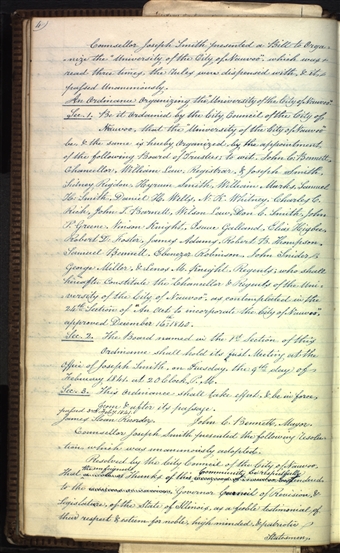 Councellor Joseph Smith presented a Bill to Orga-
nize the "University of the City of Nauvoo", which was
read three times, the rules were dispensed with, & it
passed Unanimously.
An Ordinance Organizing the "University of the City of Nauvoo".
Sec. 1. Be it ordained by the City Council of the City of
Nauvoo, that the "University of the City of Nauvoo"
be & the same is hereby Organized, by the appointment
of the following Board of Trustees; to wit, John C. Bennett,
Chancellor, William Law, Registrar, & Joseph Smith,
Sidney Rigdon, Hyrum Smith, William Marks, Samuel
H. Smith, Daniel H. Wells, N. K. Whitney, Charles C.
Rich, John T. Barnett, Wilson Law, Don C. Smith, John
P. Greene, Vinson Knight, Isaac Galland, Elias Higbee,
Robert D. Foster, James Adams, Robert B. Thompson,
Samuel Bennett, Ebenezer Robinson, John Snider,
George Miller, & Lenos M. Knight, Regents; who shall
hereafter Constitute the "Chancellor & Regents of the Uni-
versity of the City of Nauvoo", as contemplated in the
24th Section of "An act to incorporate the City of Nauvoo",
approved December 16. 1840.
Sec. 2. The Board named in the 1st Section of this
Ordinance shall hold its first Meeting at the
Office of Joseph Smith, on Tuesday, the 9th day of
February 1841. at 2 O'Clock, P. M.
Sec. 3. This Ordinance shall take effect, & be in force,
from & after its passage.
passed Feby.
James Sloan Recorder. John C. Bennett, Mayor.
Councellor Joseph Smith presented the following resolu-
tion which was unanimously adopted.
Resolved by the City Council of the City of Nauvoo,
that the unfeigned thanks of this Community be respectfully tendered
to the Governor, Council of Revision, &
Legislature, of the State of Illinois, as a feeble testimonial of
their respect & esteem for noble, high minded, & patriotic
Statesmen;